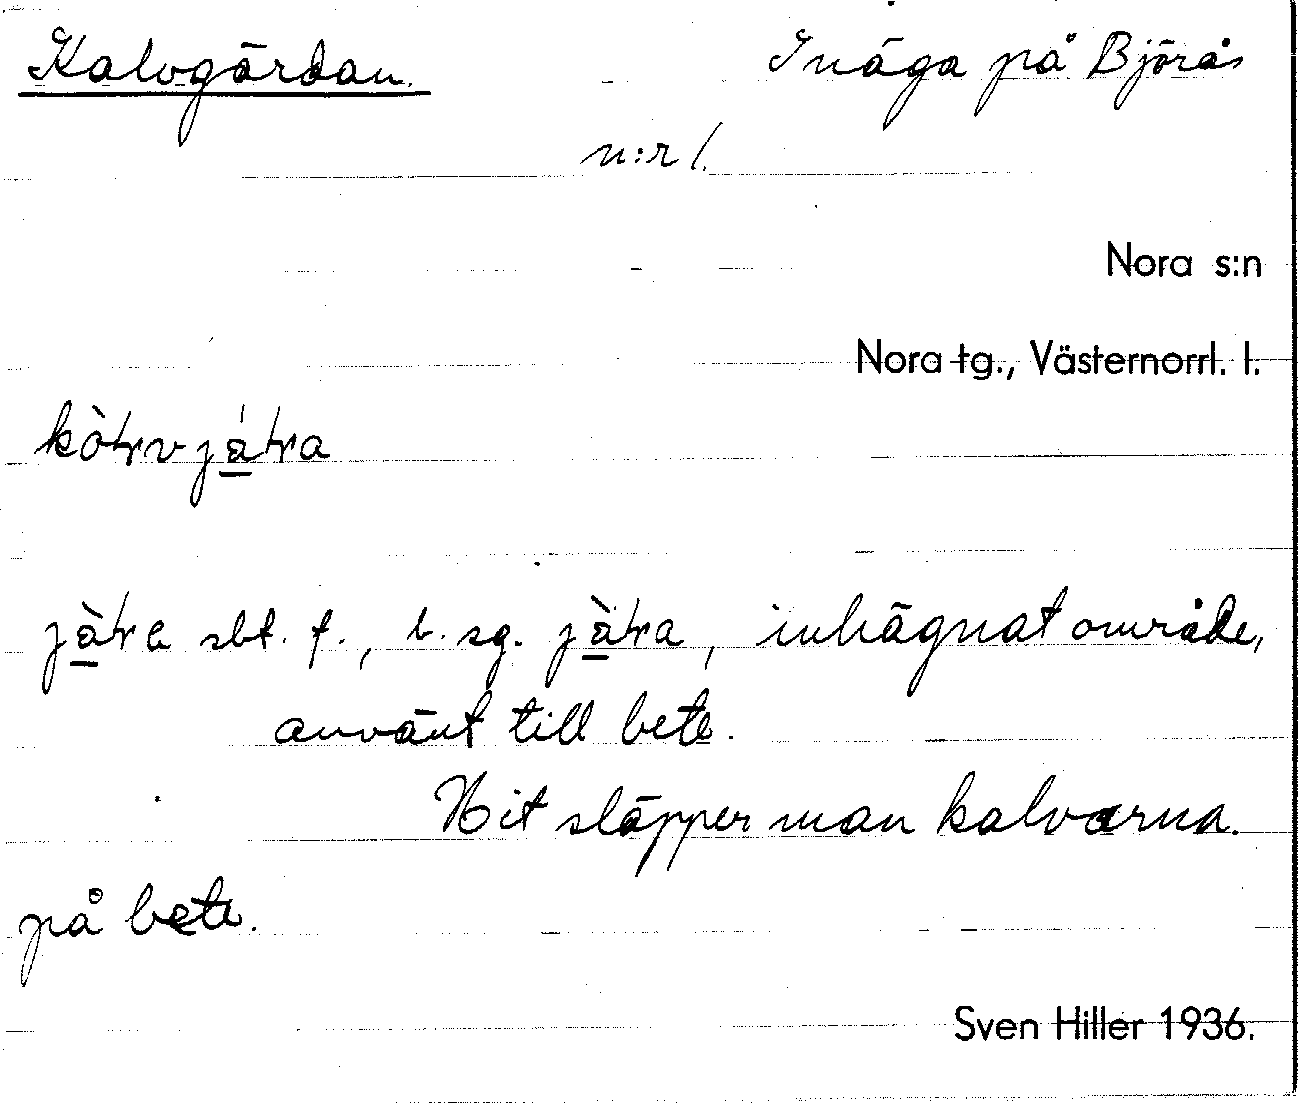 Kalvgärdan. Inäga på Björås
n:r 1.
Nora s:n
Nora tg., Västernorrl. l.
sbt. f., b. sg. , inhägnat område,
använt till bete.
Hit släpper man kalvarna.
på bete.
Sven Hiller 1936.